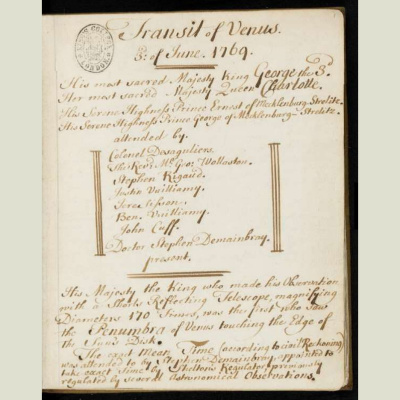 Transit of Venus.
3d: of June. 1769.
His most sacred Majesty King George the 3d.
Her most sacred Majesty Queen Charlotte.
His Serene Highness Prince Ernest of Mecklenburg-Strelitz.
His Serene Highness Prince George of Mecklenburg-Strelitz.
attended by.
Colonel Desaguliers.
The Revd: Mr. Geo: Wollaston.
Stephen Rigaud.
Justin Vuilliamy.
Jere: Sisson.
Ben. Vuilliamy.
John Cuff.
Doctor Stephen Demainbray.
present.
His Majesty the King who made his Observation
with a Shorts Reflecting Telescope, magnifying
Diameters 170 Times, was the first who saw
the Penumbra of Venus touching the Edge of
the Sun's Disk.
The exact Mean Time (according to civil Reckoning)
was attended to by Stephen Demainbray, appointed to
take exact Time by Shelton's Regulator, previously
regulated by several Astronomical Observations.